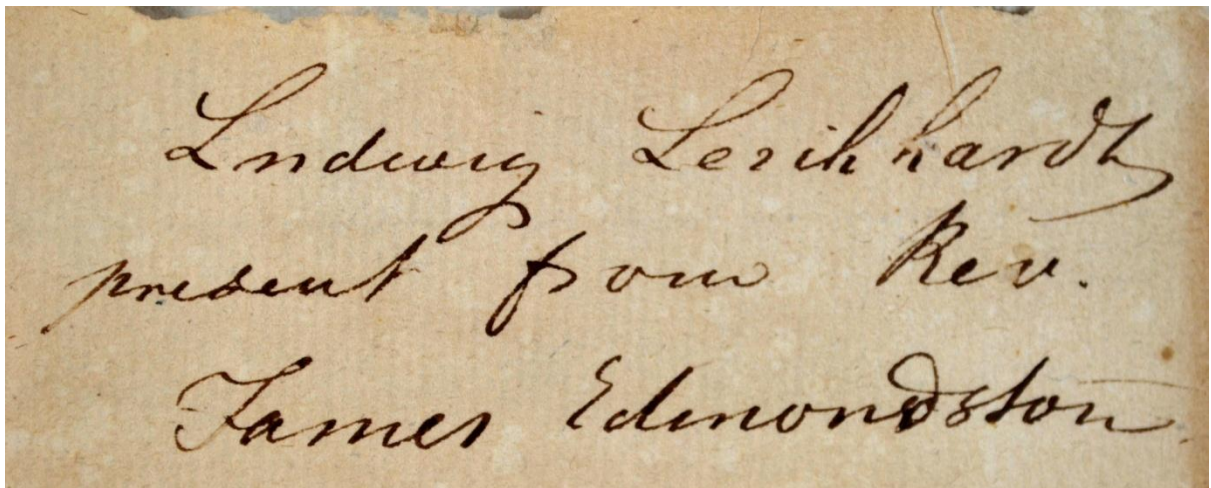 Ludwig Leichhardt
present from Rev.
James Edmondston